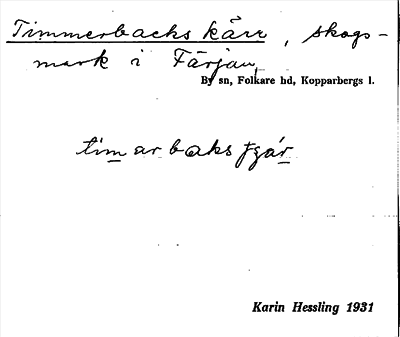 Timmerbacks kärr, skogs-
mark i Färjan,
By sn, Folkare hd, Kopparbergs l.
Karin Hessling 1931